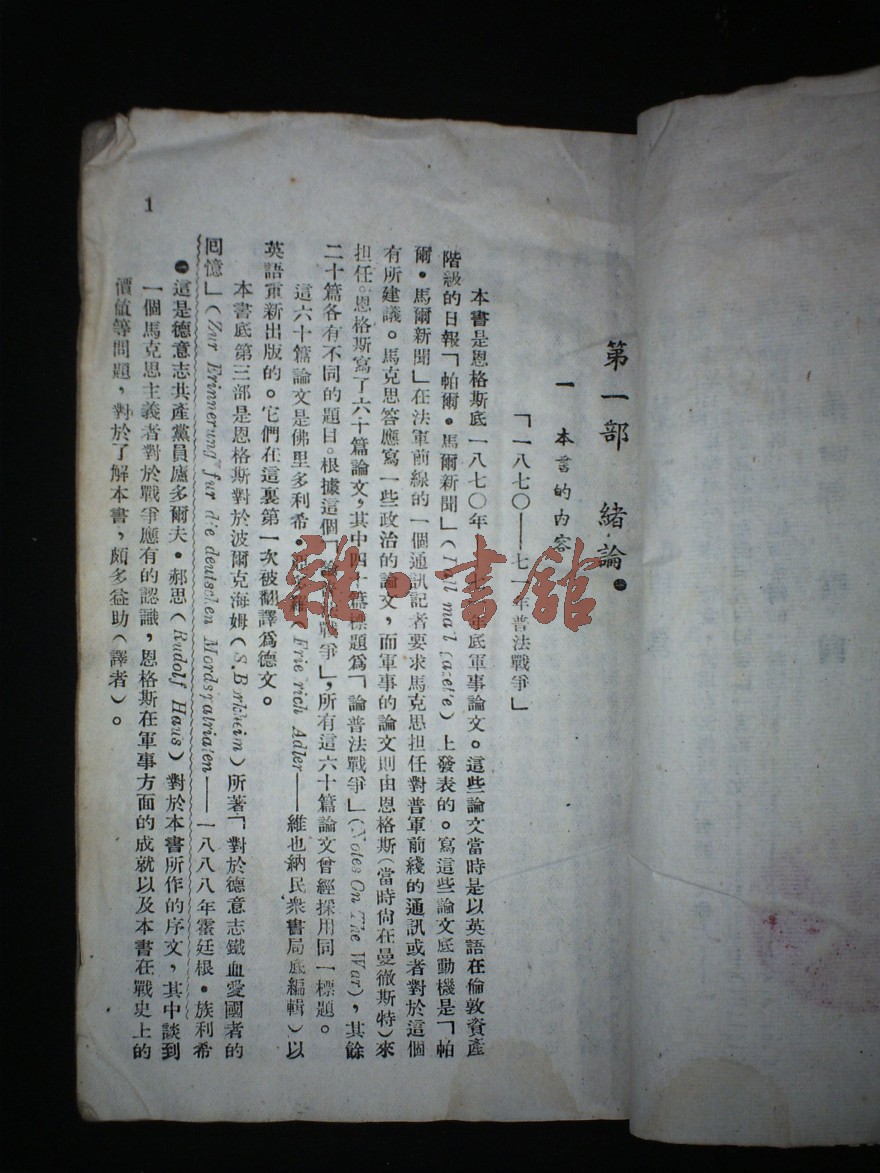 第一部　緒論●
一　本書的內容
「一八七〇——七一年普法戰爭」
本書是恩格斯底一八七〇年 年底軍事論文。這些論文當時是以英語在倫敦資產
階級的日報「帕爾・馬爾新聞」( mall )上發表的。寫這些論文底動機是「帕
爾・馬爾新聞」在法軍前線的一個通訊記者要求馬克思担任對普軍前綫的通訊或者對於這個
有所建議。馬克思答應寫一些政治的論文，而軍事的論文則由恩格斯(當時尙在曼徹斯特)來
担任。恩格斯寫了六十篇論文，其中四十篇標題爲「論普法戰爭」(Notes On The War)，其餘
二十篇各有不同的題目。根據這個「論 戰爭」，所有這六十篇論文曾經採用同一標題。
這六十篇論文是佛里多利希・ (Frie rich Adler——維也納民衆書局底編輯)以
英語重新出版的。它們在這裏第一次被翻譯爲德文。
本書底第三部是恩格斯對於波爾克海姆(S. Borkheim)所著「對於德意志鐵血愛國者的
回憶」(Zur Erinnerung fur die deutschen Mordspatrioten——一八八八年霍廷根・族利希
●這是德意志共產黨員廬多爾夫・郝思(Rudolf Haus)對於本書所作的序文，其中談到
一個馬克思主義者對於戰爭應有的認識，恩格斯在軍事方面的成就以及本書在戰史上的
價値等問題，對於了解本書，頗多益助(譯者)。
1
雜・書館